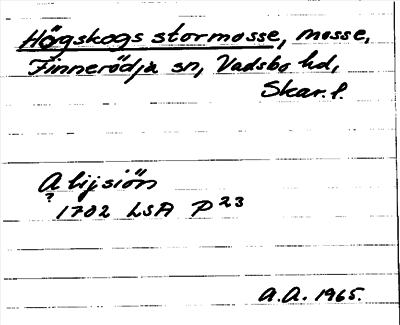 Högskogs stormosse, mosse,
Finnerödja sn, Vadsbo hd,
Skar. l.
A lijsiön
? 1702 LSA P 23
A.A. 1965.